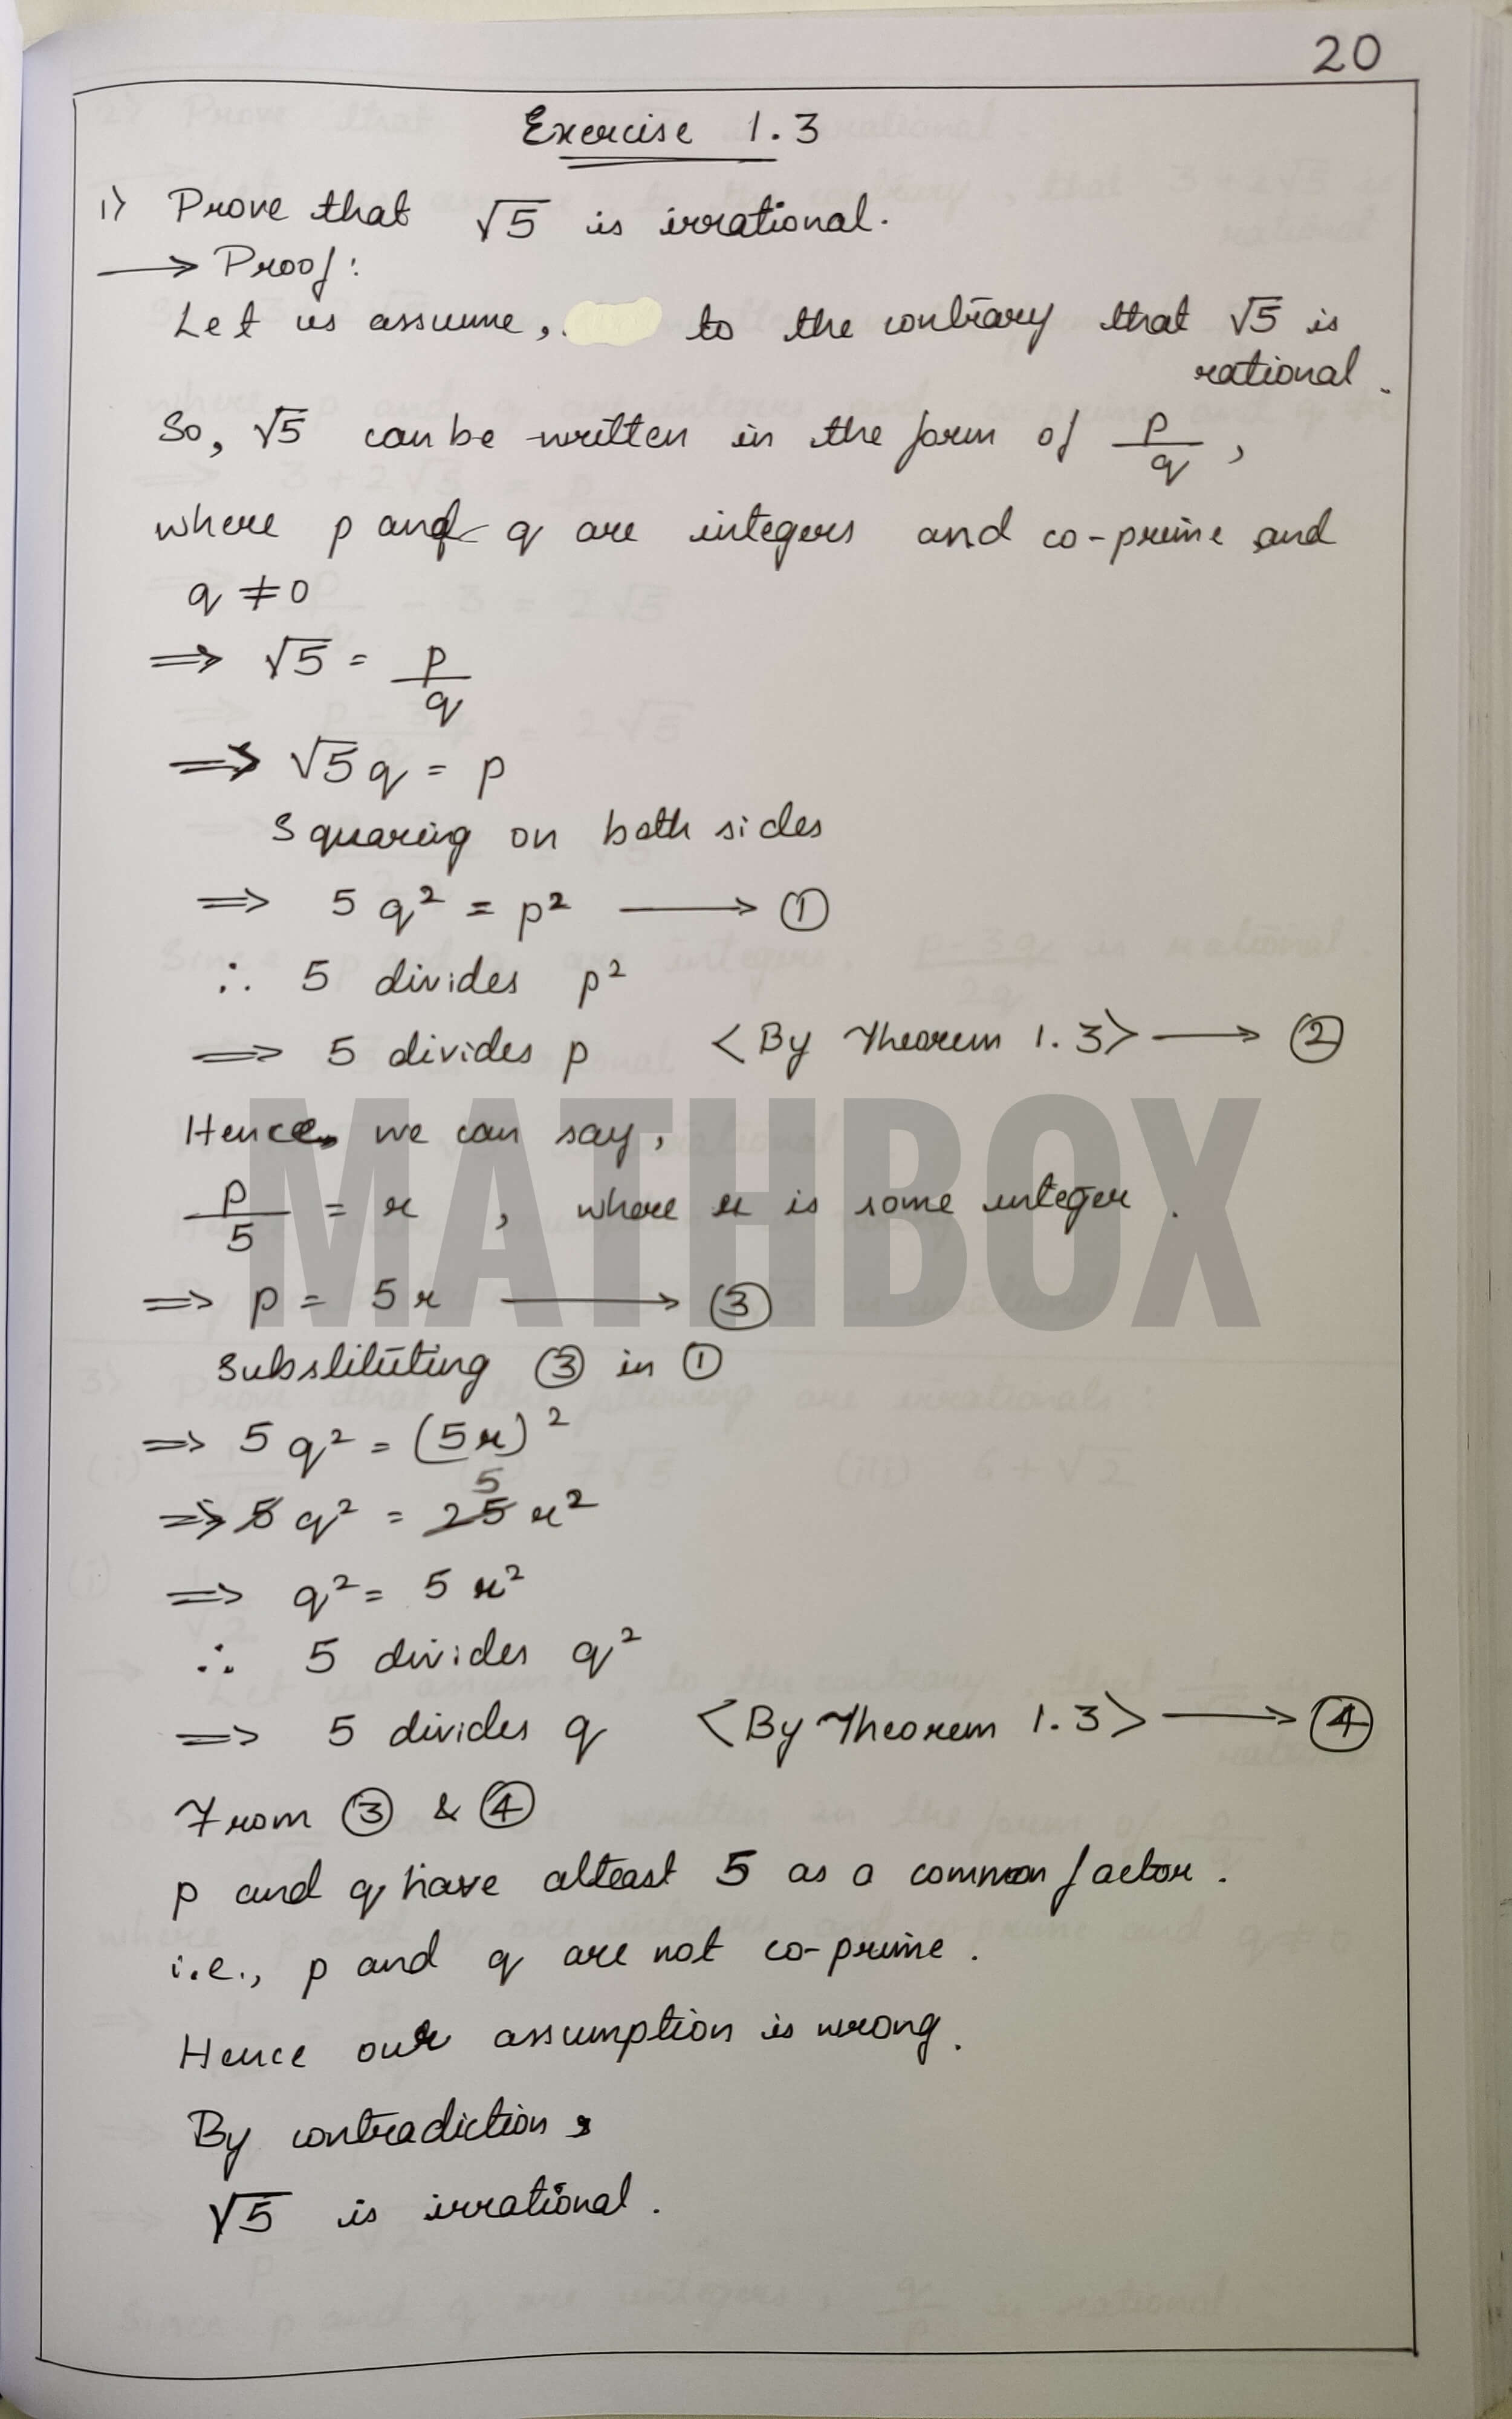 20
Exercise 1.3
1) Prove that √5 is irrational.
→ Proof:
Let us assume, to the contrary that √5 is
rational.
So, √5 can be written in the form of p/q,
where p and q are integers and co-prime and
q ≠ 0
⇒ √5 = p/q
⇒ √5q = p
Squaring on both sides
⇒ 5q² = p² → ①
∴ 5 divides p²
⇒ 5 divides p <By Theorem 1.3> → ②
Hence, we can say,
p/5 = r, where r is some integer.
MATHBOX
⇒ p = 5r → ③
Substituting ③ in ①
⇒ 5q² = (5r)²
5
⇒ 5q² = 25r²
⇒ q² = 5r²
∴ 5 divides q²
⇒ 5 divides q <By Theorem 1.3> → ④
From ③ & ④
p and q have atleast 5 as a common factor.
i.e., p and q are not co-prime.
Hence our assumption is wrong.
By contradiction,
√5 is irrational.